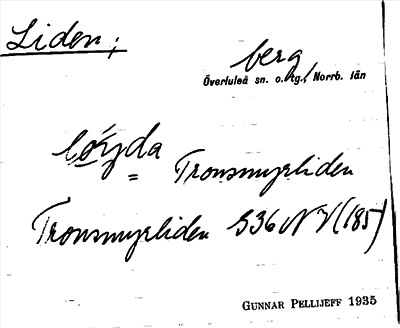 Liden;
berg
Överluleå sn. o. tg., Norrb. län
Tronsmyrliden
Tronsmyrliden S36 NV (185)
GUNNAR PELLIJEFF 1935